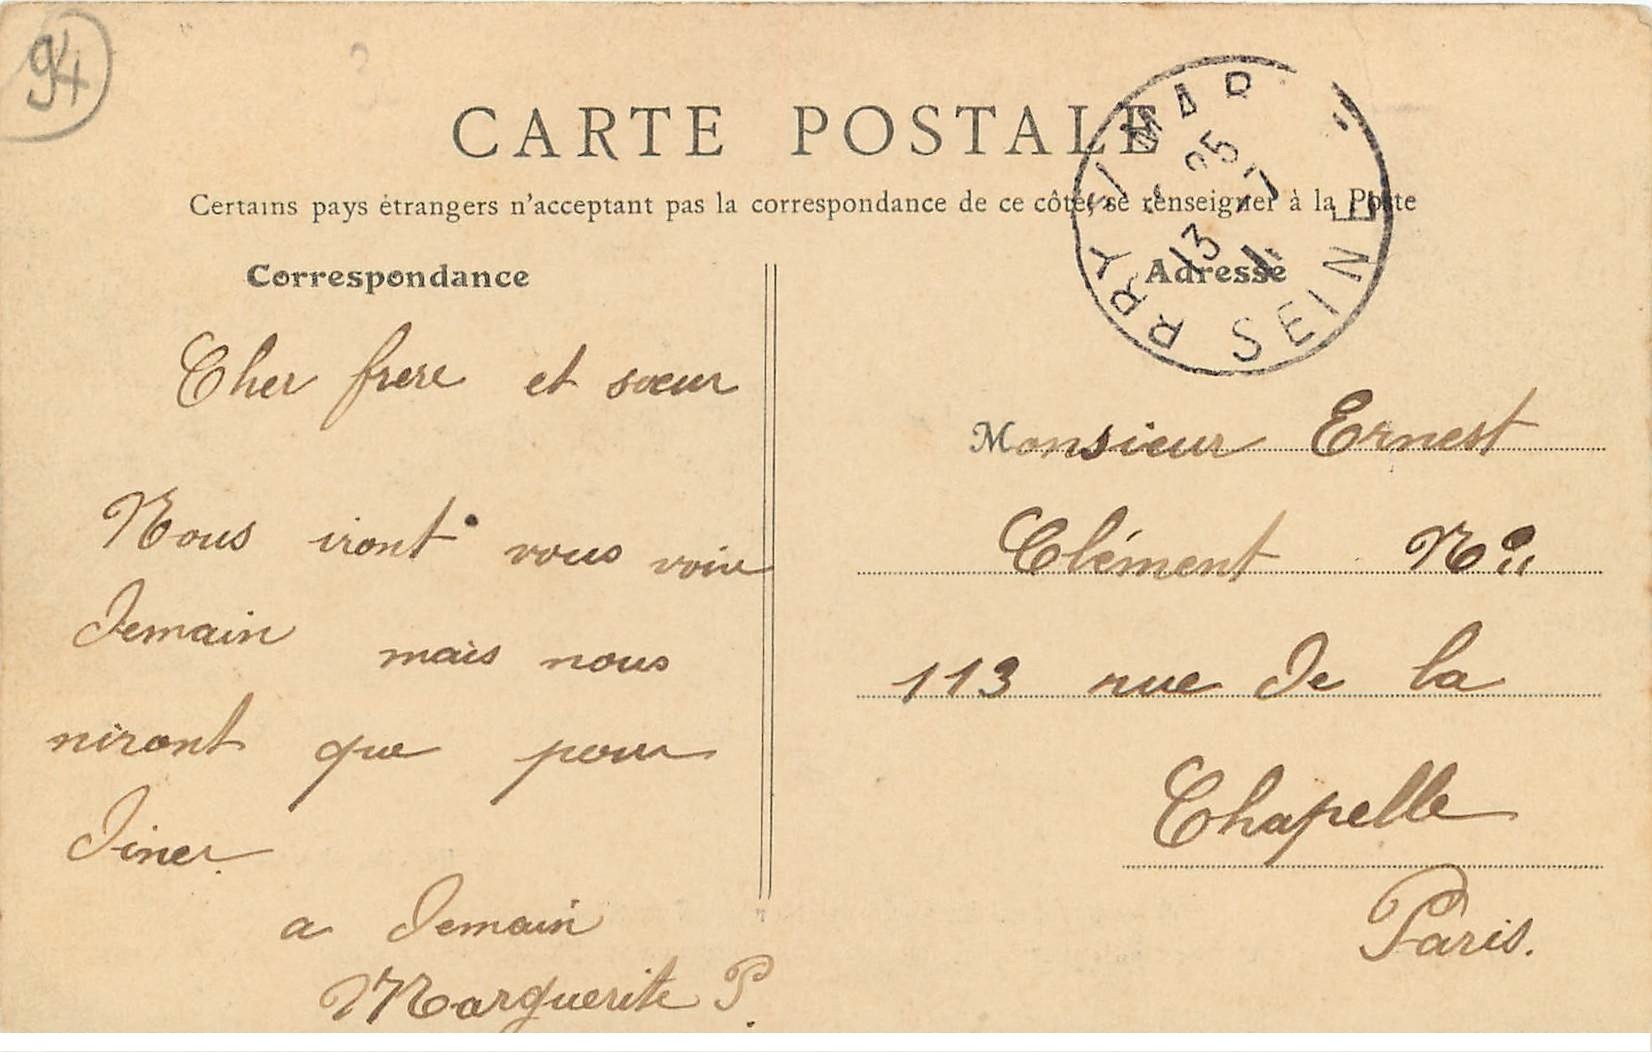 94
CARTE POSTALE
Certains pays étrangers n'acceptant pas la correspondance de ce côté, se renseigner à la Poste
Correspondance
Cher frere et sœur
Nous iront vous voir
demain mais nous
niront que pour
diner.
a demain
Marguerite P.
Adresse
RRY S/ MAR
25
13
11
SEINE
Monsieur Ernest
Clément
113 rue de la
Chapelle
Paris.